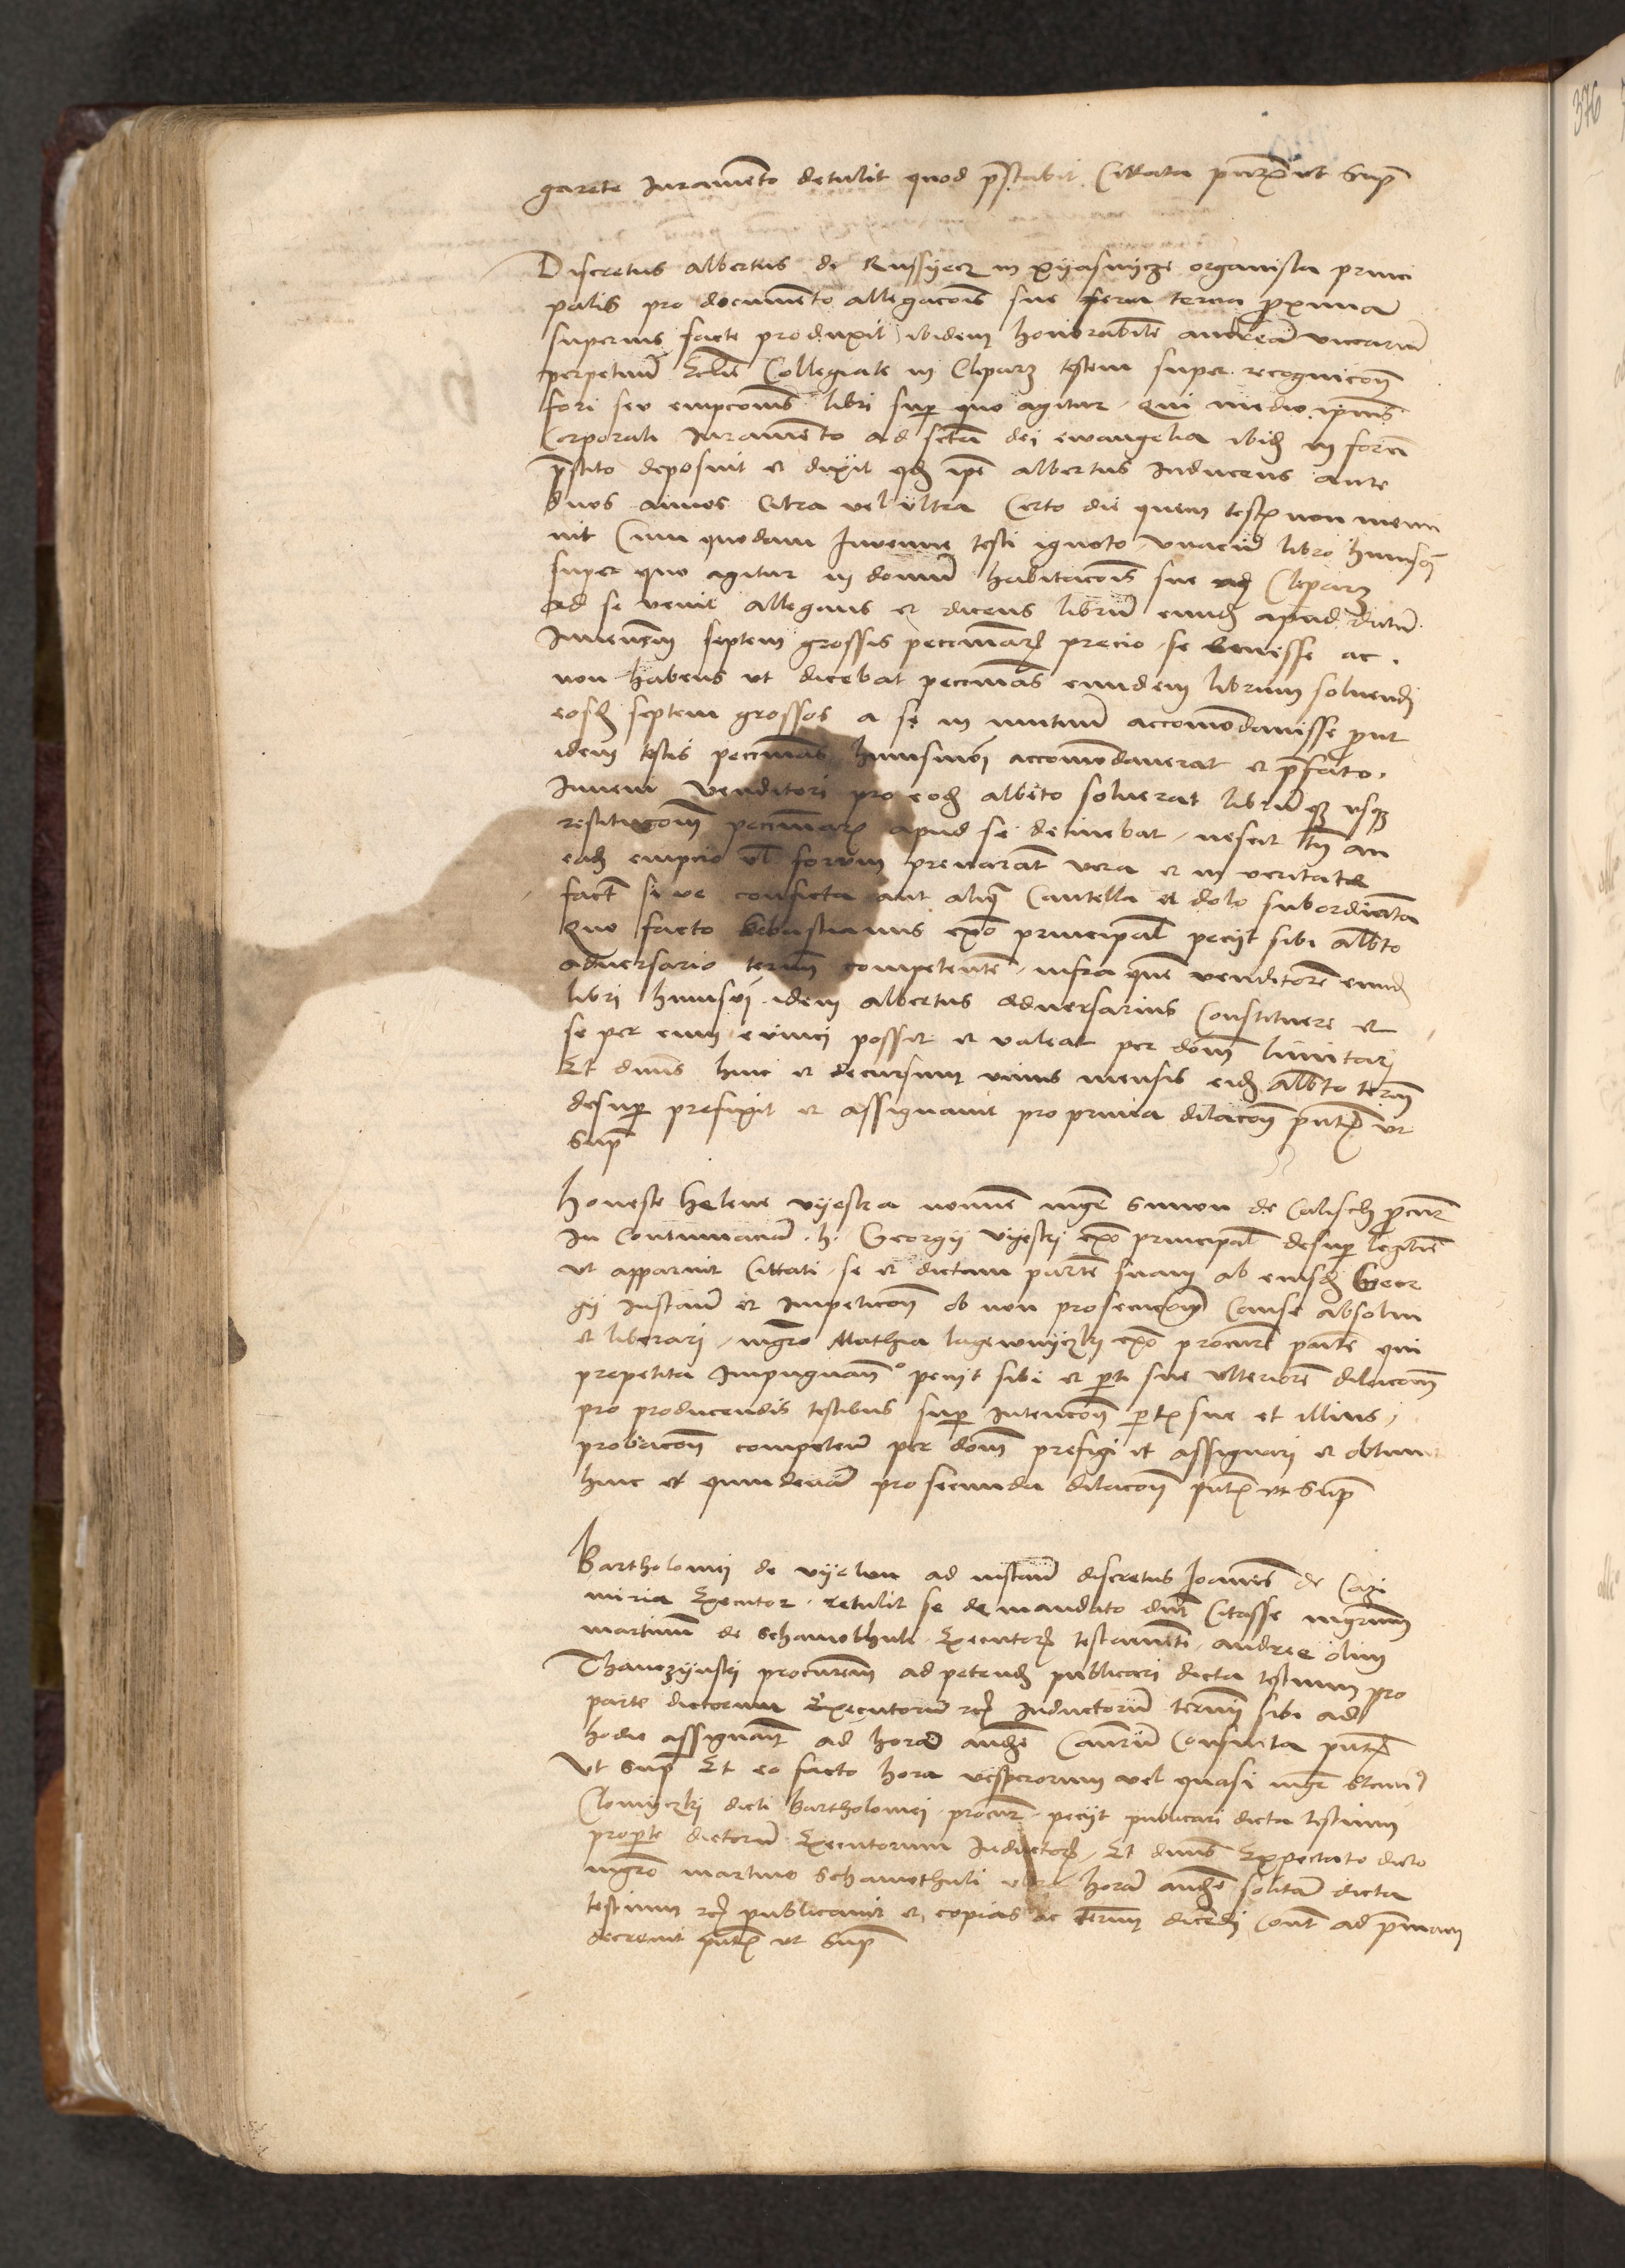 garete Iuramento detulit quod prestabit Cittata pntibus ut supra
Discretus Albertus de Russyecz in Xyasnycze organista princi
palis pro documento allegacois sue feria tercia proxima
superius facte produxit ibidem honorabilem andream vicarium
perpetuum Eclie Collegiate in Cleparz testem super recognicom
fori seu empcionis libri super quo agitur Qui medio ipsius
Corporali Iuramento ad scta dei ewangelia ibidem in forma
prestito deposuit et dixit qd ipse albertus inducens ante
duos annos Citra vel ultra Certo die quem testis non memi
nit Cum quodam Iuvene testi ignoto unacum libro huiusmodi
super quo agitur in domum habitacois sue Cleparz
ad se venit allegans et dicens librum eundem apud dictum
Iuvenem septem grossis pecuniarum precio se emisse ac
non habens ut dicebat pecunias eundem librum solvendi
eosdem septem grossos a se in mutuum accomodauisse prout
idem testis pecunias huiusmodi accomodaverat et prefato
Iuveni venditori pro eodem alberto solverat librumque usque
restitucom pecuniarum apud se detinebat nescit tamen an
eadem empcio vel forum prenarrat vera et in veritate
fact sive conficta aut aliqua Cautella et dolo subordinata
Quo facto Sebastianus ex adverso principal peciit sibi alberto
adversario terminum competentem infra quem venditorem eundem
libri huiusmodi idem albertus adversarius Constituere et
se per eum evinci possit et valeat per dominum limitari
Et dominus hinc et decursum unius mensis eidem alberto terminum
desuper prefixit et assignavit pro prima dilacom pntibus ut
supra
Honeste Helene vyestra nomine mgr Simon de Calisch procur
In Contumaciam h. Georgii vyestri ex adverso principal desuper legitime
ut apparuit Cittati se et dictam partem suam ab eiusdem Geor
gii Instancia et Impeticom ob non prosecucom Cause absolvi
et liberari mgro Mathia lagewnyczky ex adverso procure pnte qui
prepetita Impugnando peciit sibi et parti sue ulteriorem dilacom
pro producendis testibus super Intencom partis sue et illius
probacom competen per dominum prefigi et assignari et obtinuit
hinc et quindenam pro secunda dilacom pntibus ut supra
Bartholomei de vyelun ad instanciam discretus Ioannes de Cazi
miria Executor retulit se de mandato dni Citasse mgrum
martinum de Schamothuli Executorum testamenti andree olim
Thanczynski procuratorem ad petendum publicari dicta testium pro
parte dictorum Executorum etc Inductorum termino sibi ad
hodie assignato ad horam audien Causarum Consueta pntibus
Ut supra Et eo facto hora vesperorum vel quasi mgr Stanis
Clomyczki dicti Bartholomei procur peciit publicari dicta testium
pro parte dictorum Executorum Inductorum Et dominus Expectato dicto
mgro martino Schamothuli ultra horam audien solitam dicta
testium etc publicavit et copias ac terminum dicendi Contra ad primam
decrevit pntibus ut supra
376